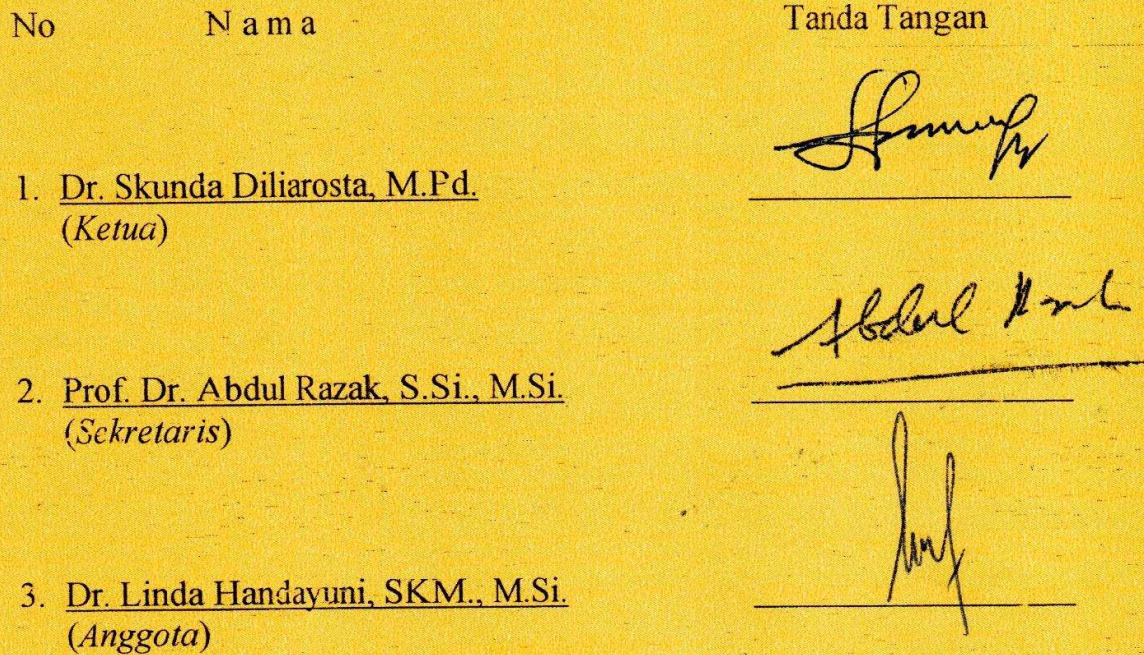 No N a m a Tanda Tangan
1. Dr. Skunda Diliarosta, M.Pd.
(Ketua)
Abdul
2. Prof. Dr. Abdul Razak, S.Si., M.Si.
(Sekretaris)
3. Dr. Linda Handayuni, SKM., M.Si.
(Anggota)